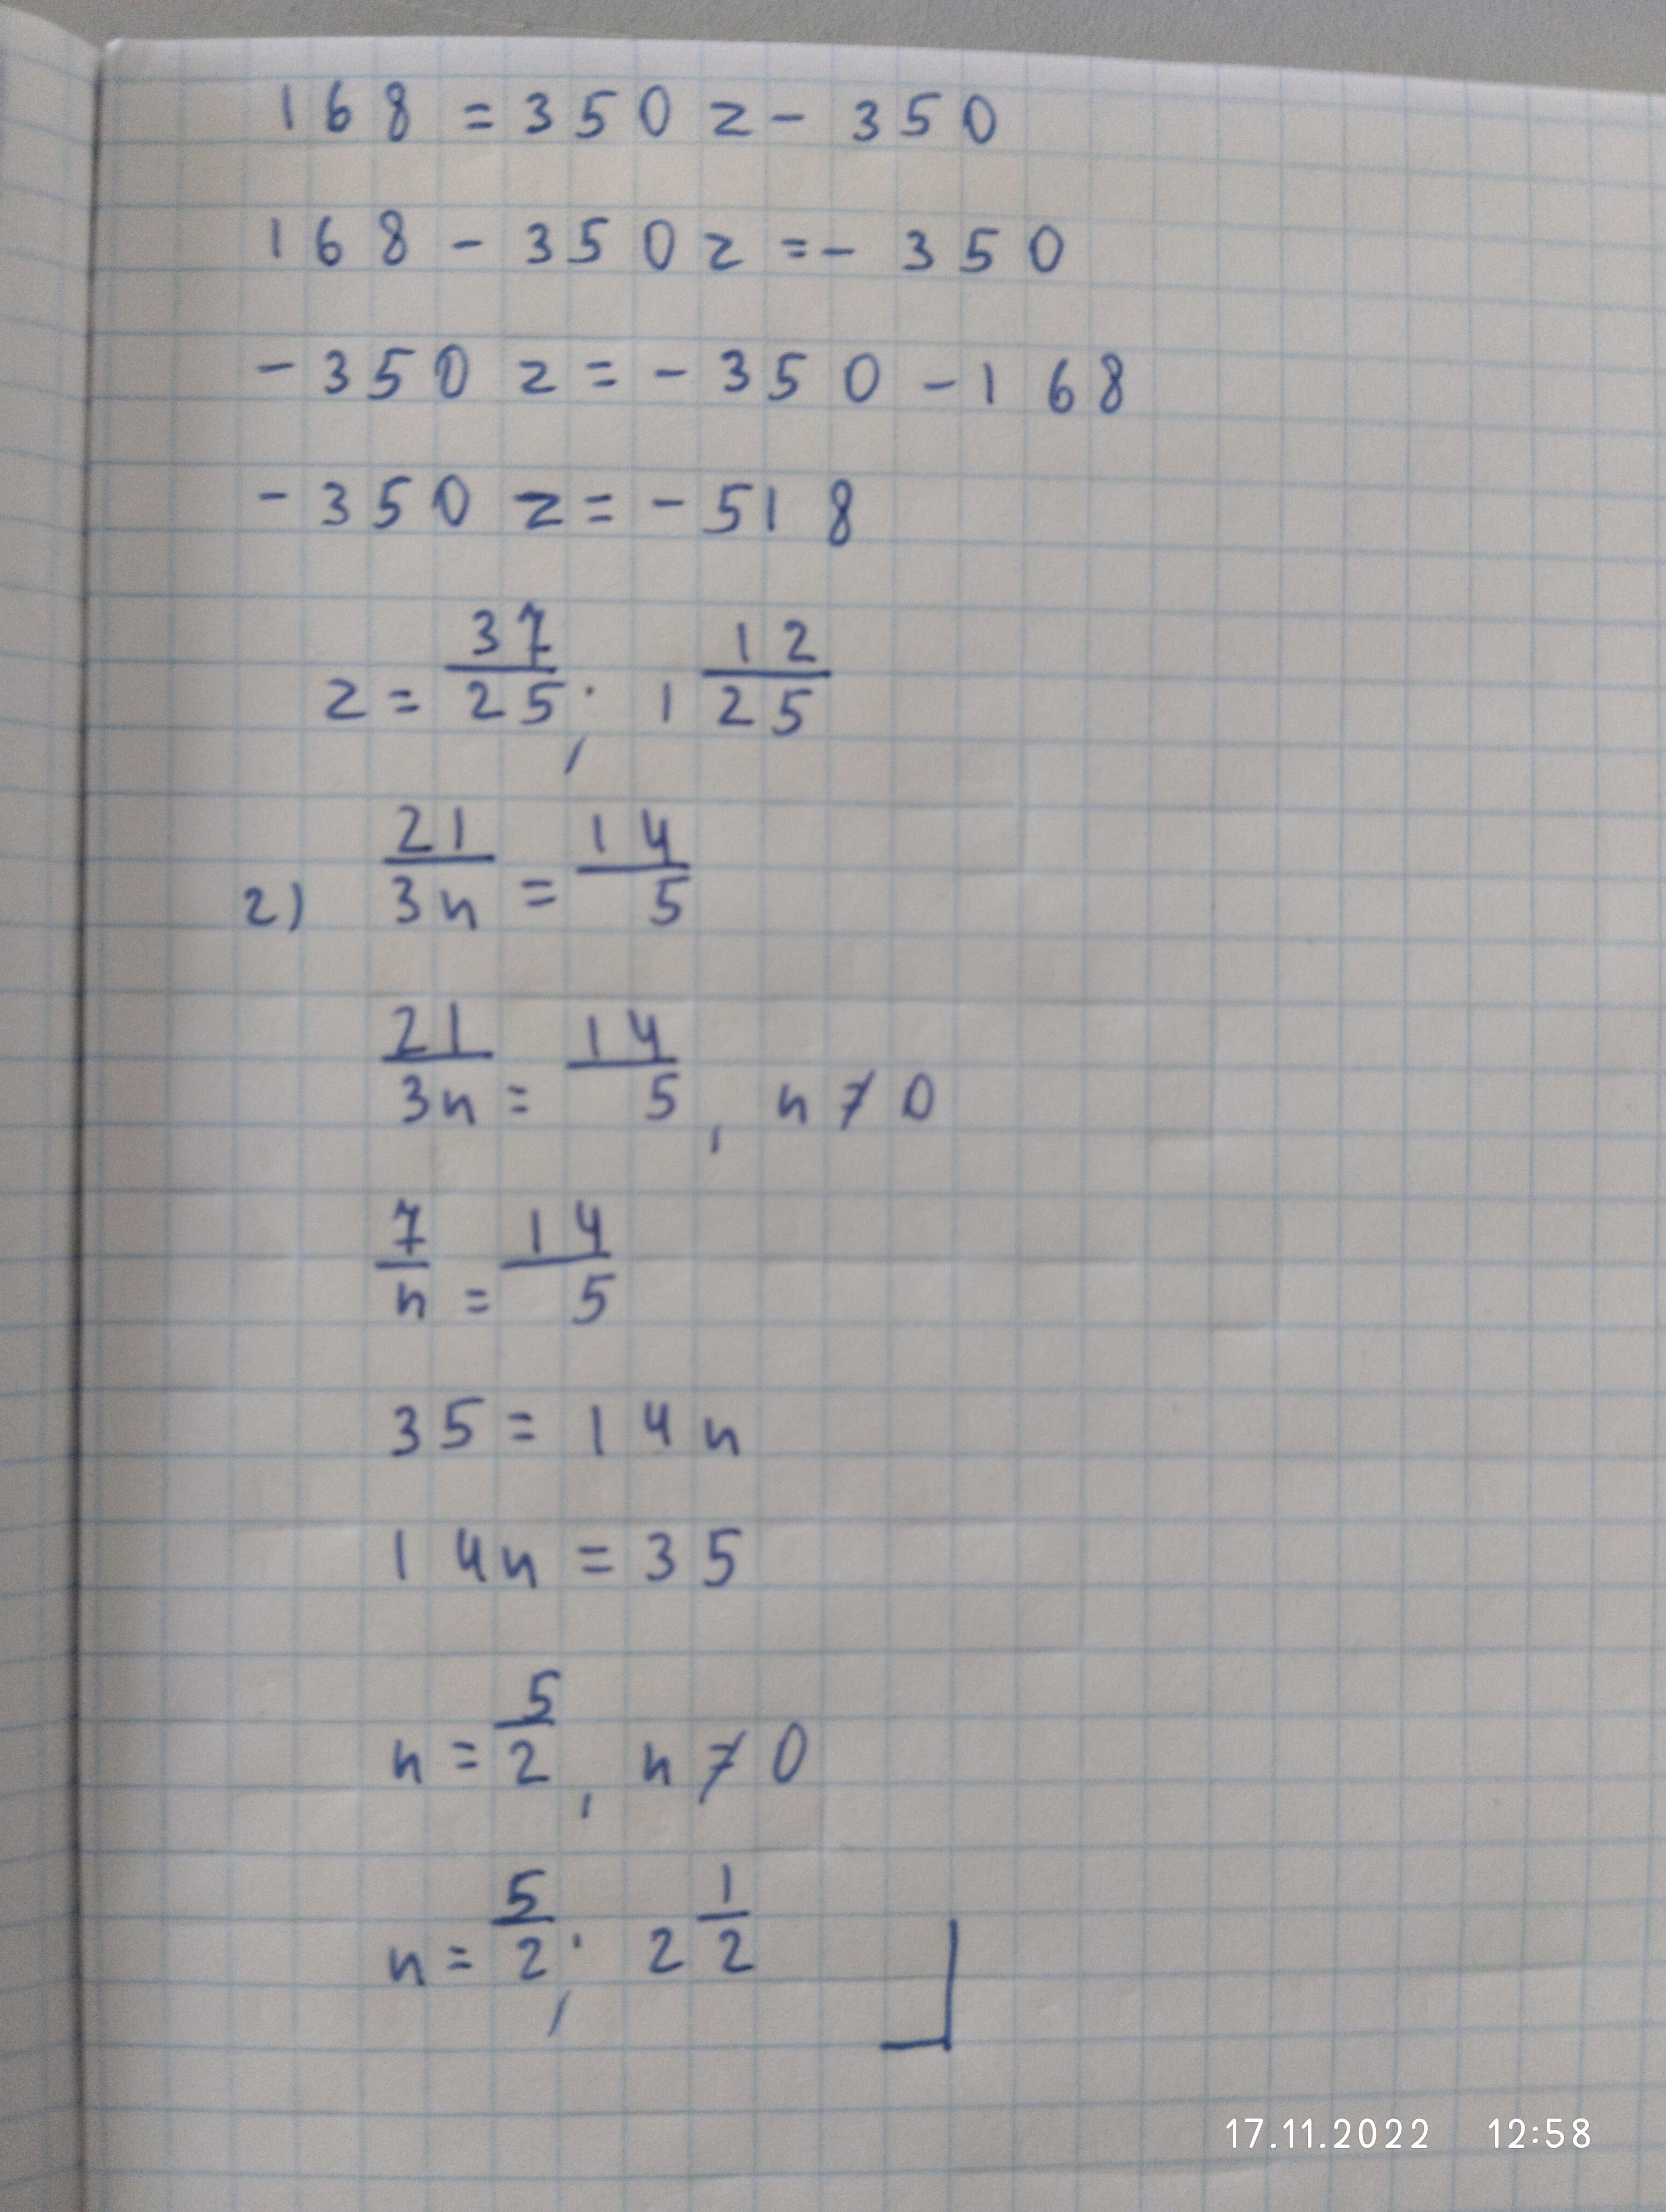 168 = 350z - 350
168 - 350z = - 350
- 350z = - 350 - 168
- 350z = - 518
z = 37/25; 1 12/25
2) 21/3n = 14/5
21/3n = 14/5, n ≠ 0
7/n = 14/5
35 = 14n
14n = 35
n = 5/2, n ≠ 0
n = 5/2; 2 1/2
17.11.2022 12:58